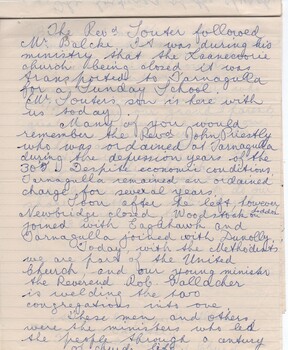 The Revd Souter followed
Mr Balche. It was during his
ministry that the Laanecoorie
church being closed it was
transported to Tarnagulla
for a Sunday School.
(Mr Souter's son is here with
us today.
Many of you would
remember the Revd John Priestly
who was ordained at Tarnagulla
during the depression years of the
30's. Despite economic conditions
Tarnagulla remained an ordained
charge for several years.
Soon after he left, however
Newbridge closed, Woodstock on Loddon
joined with Eaglehawk and
Tarnagulla joined with Dunolly.
Today, with the Methodists
we are part of the United
Church, and our young minister
the Reverend Rob Galldcher
is welding the two
congregations into one.
These men and others
were the ministers who led
the people through a century
of church life